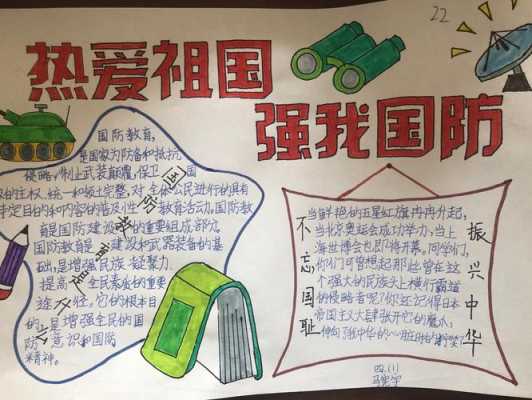 22
热爱祖国
强我国防
国防教育,
是国家为防备和抵抗
侵略,制止武装颠覆,保卫国
的主权、统一和领土完整,对全体公民进行的具有
特定目的和内容的普及性教育活动。国防教
育是国防建设的重要组成部分,
国防教育是建设和武器装备的基
础,是增强民族凝聚力、
提高全民素养的重要
途径。它的根本目
的,是增强全民的国
防意识和国防
精神。
国防教育
不忘国耻
当鲜艳的五星红旗冉冉升起,
当北京奥运会成功举办,当上
海世博会也即将开幕,同学们,
你们可曾想起那些曾在这
个强大的民族头上横行霸道
的侵略者呢?你还记得日本
帝国主义大肆张开它的魔爪,
伸向我中华的
振兴中华
四.(1)